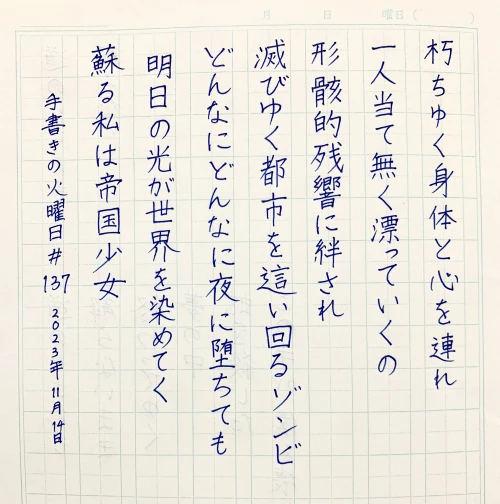 月 日 曜日( )
朽ちゆく身体と心を連れ
一人当て無く漂っていくの
形骸的残響に絆され
滅びゆく都市を這い回るゾンビ
どんなにどんなに夜に堕ちても
明日の光が世界を染めてく
蘇る私は帝国少女
手書きの火曜日#137 2023年11月14日